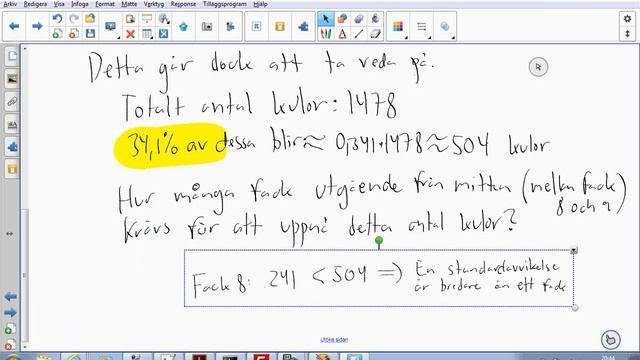 Arkiv Redigera Visa Infoga Format Matte Verktyg Response Tilläggsprogram Hjälp
Detta går dock att ta reda på.
Totalt antal kulor: 1478
34,1% av dessa blir ≈ 0,341·1478 ≈ 504 kulor
Hur många fack utgående från mitten (mellan fack
8 och 9)
krävs för att uppnå detta antal kulor?
Fack 8: 241 < 504 => En standardavvikelse
är bredare än ett fack
Utöka sidan
20:44